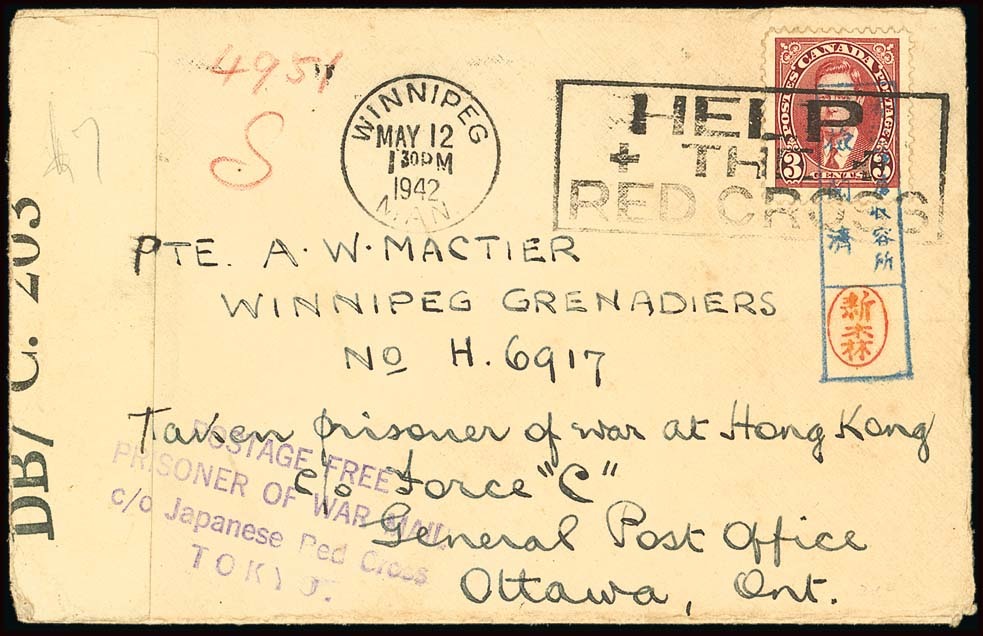 4951
S
#7
DB/ C. 203
WINNIPEG
MAY 12
1 30PM
1942
MAN
HELP
+ THE +
RED CROSS
POSTES CANADA POSTAGE
3 CENTS 3
PTE. A. W. MACTIER
WINNIPEG GRENADIERS
No H. 6917
Taken prisoner of war at Hong Kong
c/o Force "C"
General Post Office
Ottawa, Ont.
POSTAGE FREE
PRISONER OF WAR MAIL
c/o Japanese Red Cross
TOKYO.
收容所
閲濟
新木林